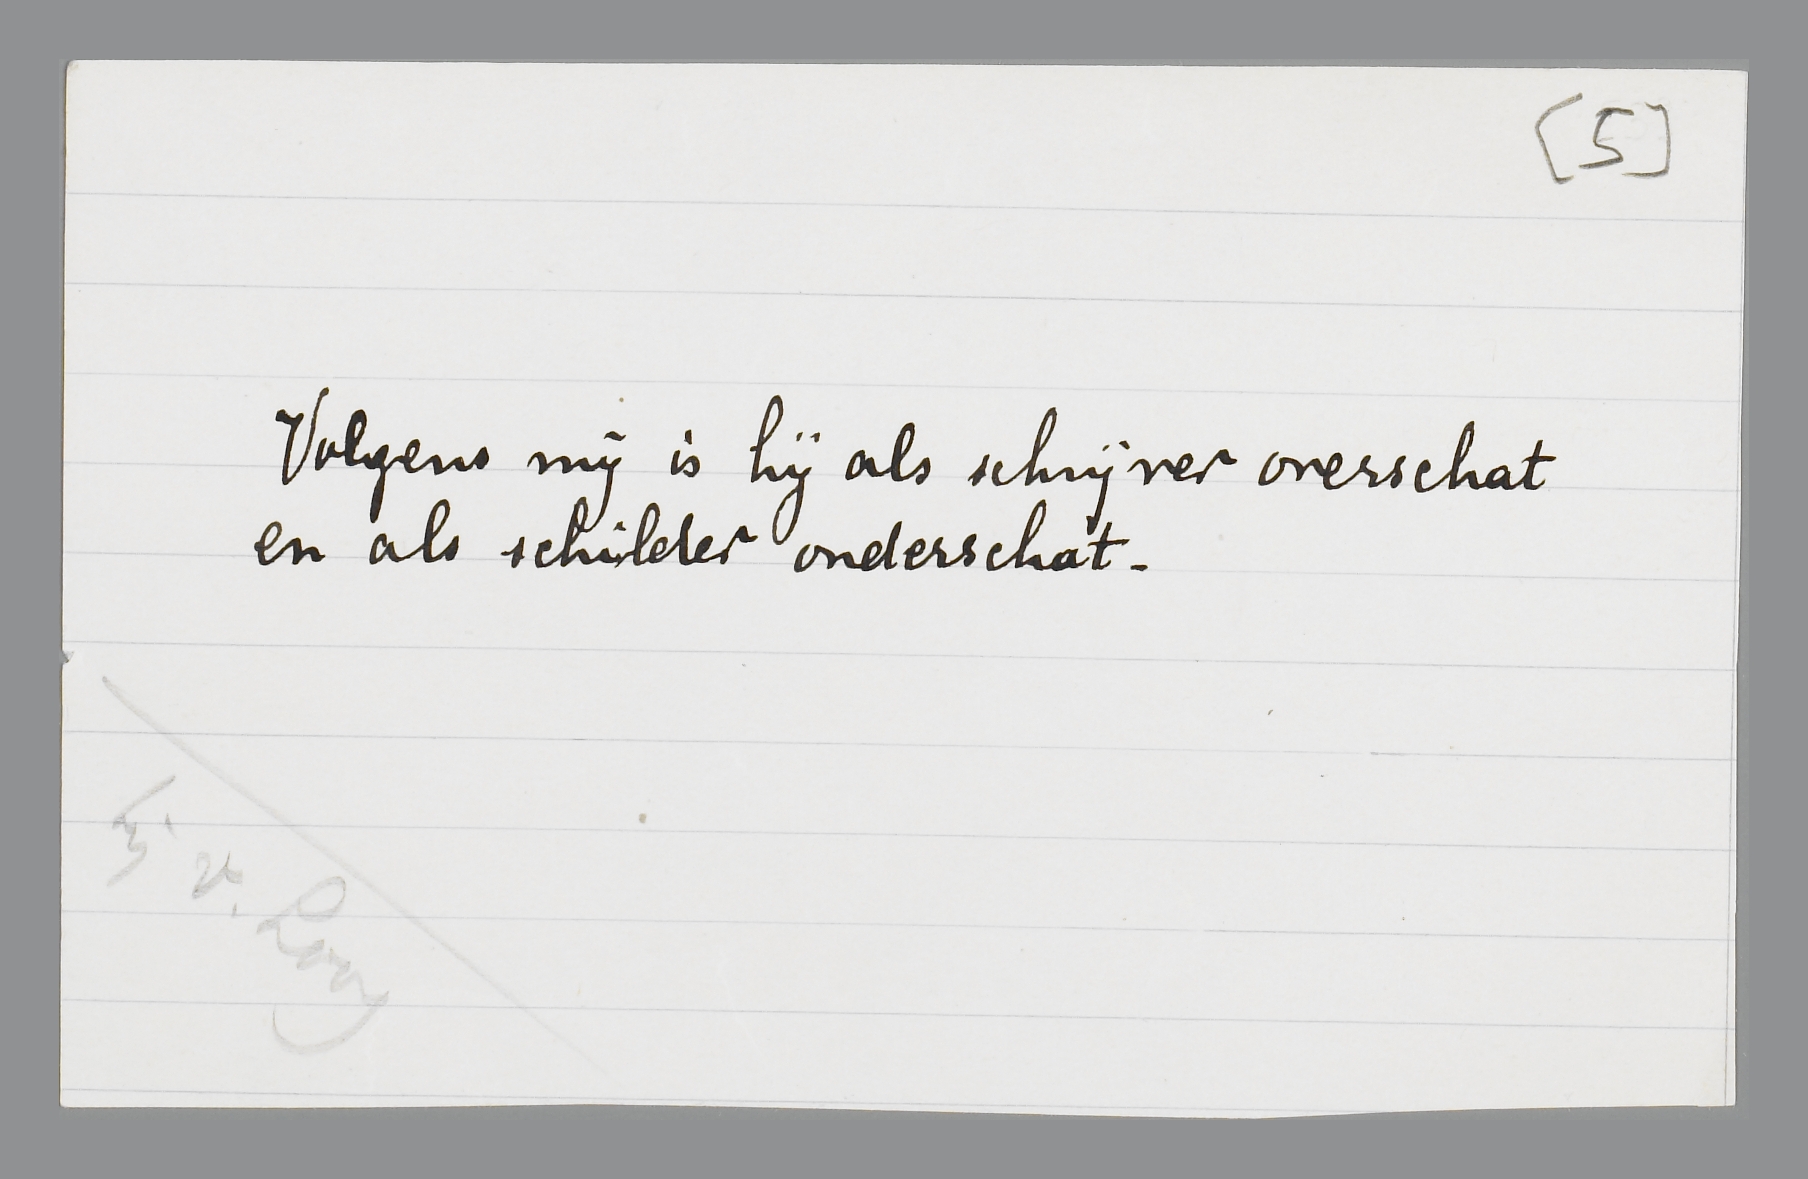 [5]
Volgens mij is hij als schrijver overschat
en als schilder onderschat.
v. Looy